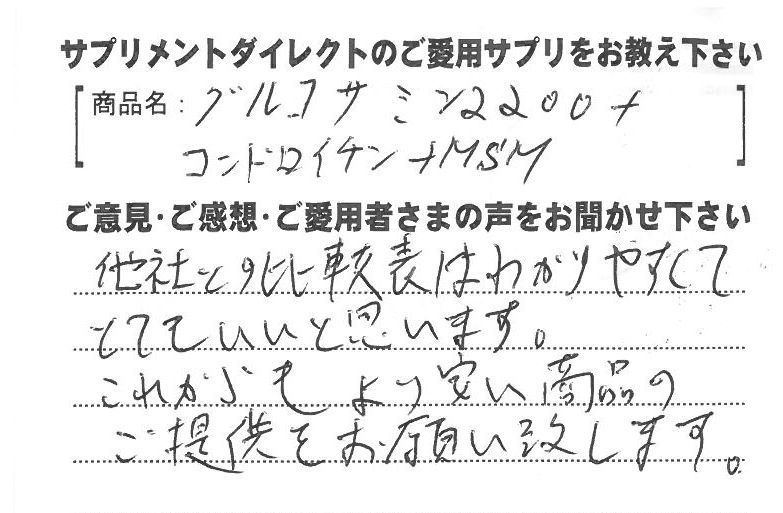 サプリメントダイレクトのご愛用サプリをお教え下さい
商品名：グルコサミン2200+
コンドロイチン+MSM
ご意見・ご感想・ご愛用者さまの声をお聞かせ下さい
他社との比較表はわかりやすくて
とてもいいと思います。
これからもより安い商品の
ご提供をお願い致します。